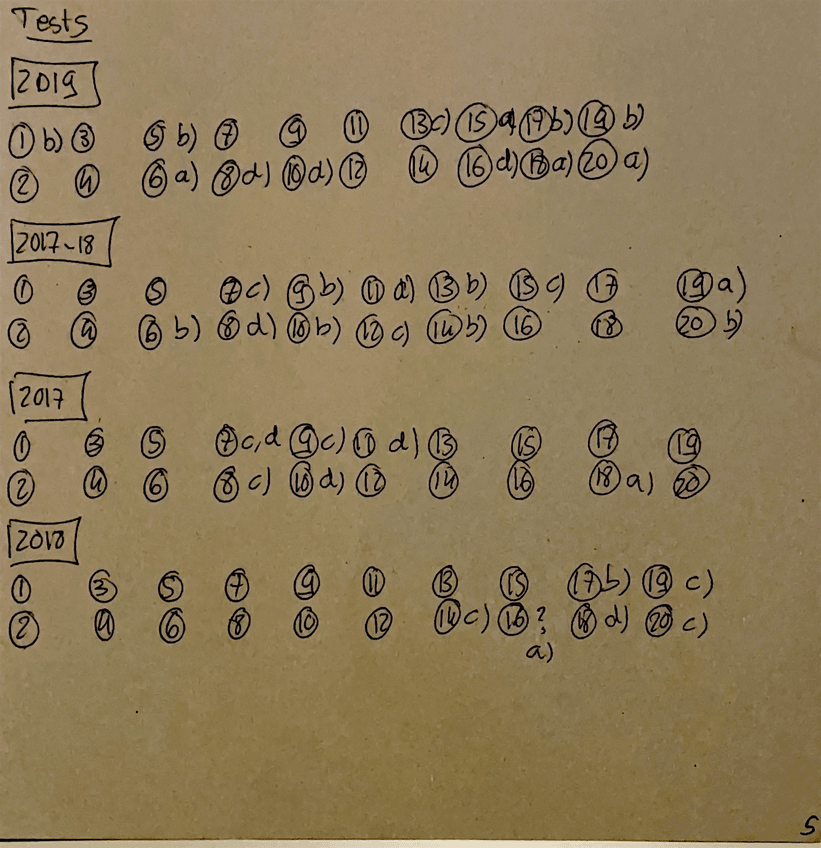 Tests
2019
① b) ③ ⑤ b) ⑦ ⑨ ⑪ ⑬ c) ⑮ a) ⑰ b) ⑲ b)
② ④ ⑥ a) ⑧ d) ⑩ d) ⑫ ⑭ ⑯ d) ⑱ a) ⑳ a)
2017-18
① ③ ⑤ ⑦ c) ⑨ b) ⑪ d) ⑬ b) ⑮ c) ⑰ ⑲ a)
② ④ ⑥ b) ⑧ d) ⑩ b) ⑫ c) ⑭ b) ⑯ ⑱ ⑳ b)
2017
① ③ ⑤ ⑦ c,d ⑨ c) ⑪ d) ⑬ ⑮ ⑰ ⑲
② ④ ⑥ ⑧ c) ⑩ d) ⑫ ⑭ ⑯ ⑱ a) ⑳
2018
① ③ ⑤ ⑦ ⑨ ⑪ ⑬ ⑮ ⑰ b) ⑲ c)
② ④ ⑥ ⑧ ⑩ ⑫ ⑭ c) ⑯ ? ⑱ d) ⑳ c)
a)
5